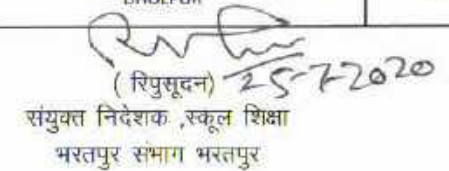 ( रिपुसूदन) 25-7-2020
संयुक्त निदेशक ,स्कूल शिक्षा
भरतपुर संभाग भरतपुर